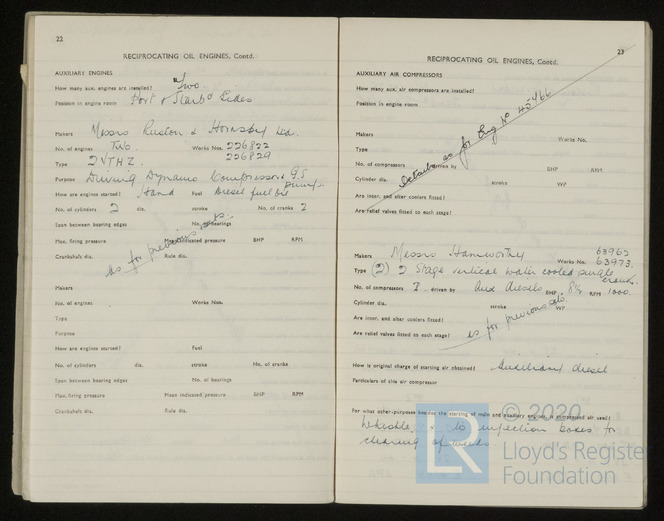 22
RECIPROCATING OIL ENGINES, Contd.
AUXILIARY ENGINES
How many aux. engines are installed? Two
Position in engine room Port & Starbd Sides
Makers Messrs Ruston & Hornsby Ltd.
No. of engines Two. Works Nos. 226822
226829
Type 2VTHZ.
Purpose Driving Dynamo Compressors G.S. pump.
How are engines started? Hand Fuel Diesel fuel oil
No. of cylinders 2 dia. stroke No. of cranks 2
Span between bearing edges No. of bearings
Max. firing pressure Mean indicated pressure BHP RPM
Crankshaft dia. Rule dia.
as for previous
Makers
No. of engines Works Nos.
Type
Purpose
How are engines started? Fuel
No. of cylinders dia. stroke No. of cranks
Span between bearing edges No. of bearings
Max. firing pressure Mean indicated pressure BHP RPM
Crankshaft dia. Rule dia.
23
RECIPROCATING OIL ENGINES, Contd.
AUXILIARY AIR COMPRESSORS
How many aux. air compressors are installed?
Position in engine room
Makers
Type Works No.
No. of compressors driven by BHP RPM
Cylinder dia. stroke WP
Are inter. and after coolers fitted?
Are relief valves fitted to each stage?
Details as for Eng No 45466
Makers Messrs Hamworthy Works No. 63962
63973.
Type (2) 2 Stage vertical water cooled single crank.
No. of compressors 2 driven by Aux diesels BHP 8½ RPM 1000.
Cylinder dia. stroke WP
Are inter. and after coolers fitted?
Are relief valves fitted to each stage?
as for previous
How is original charge of starting air obtained? Auxiliary diesel
Particulars of this air compressor
For what other purposes besides the starting of main and auxiliary engines is compressed air used?
Whistle, to injection boxes for
clearing of weeds
© 2020
LR
Lloyd's Register
Foundation